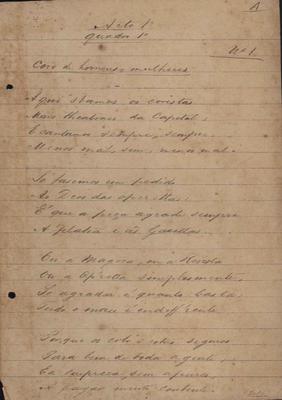 Acto 1º
quadro 1º
Nº 1.
Coro de homens e mulheres
Aqui stamos os coristas
Mais theatraes da Capital;
E cantamos sempre, sempre
Menos mal, sim, menos mal.
Só fasemos um pedido
Ao Deus das operettas:
É que a peça agrade sempre
A platéa e as
Ou a Magica, ou a Revista
Ou a Opéretta simplesmente,
Se agrada é quanto basta,
Tudo o mais é indifférente.
Porque os cobres são seguros
Para bem de toda a gente,
E a empreza, sem apuros,
A pagar muito contente.